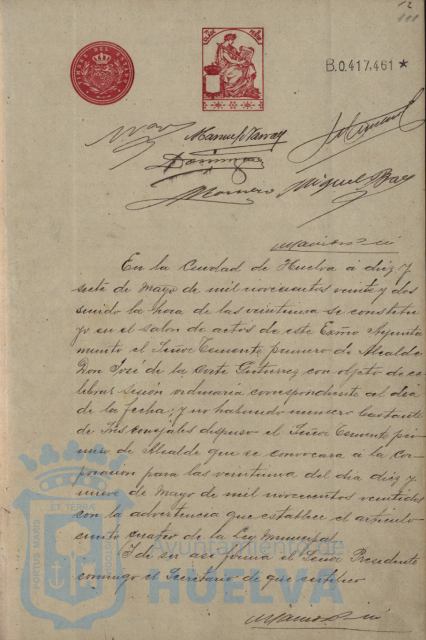 12
111
B.0.417.461 ★
Manuel
Romero Miguel Bay
En la Ciudad de Huelva á diez y
siete de Mayo de mil novecientos veinte y dos
siendo la hora de las veintiuna se constitu-
yó en el salon de actos de este Exmo Ayunta
miento el Señor Teniente primero de Alcalde
Don José de la Corte Gutierrez con objeto de ce-
lebrar sesión ordinaria correspondiente al dia
de la fecha; y no habiendo número bastante
de Sres Concejales dispuso el Señor Teniente pri-
mero de Alcalde que se convocara á la Cor-
poración para las veintiuna del dia diez y
nueve de Mayo de mil novecientos veintidos
con la advertencia que establece el artículo
ciento cuatro de la Ley Municipal.
Y de ser así firma el Señor Presidente
conmigo el Secretario de que certifico
PORTUS MARIS ET TERRAE CUSTODIA
Ayuntamiento de
HUELVA